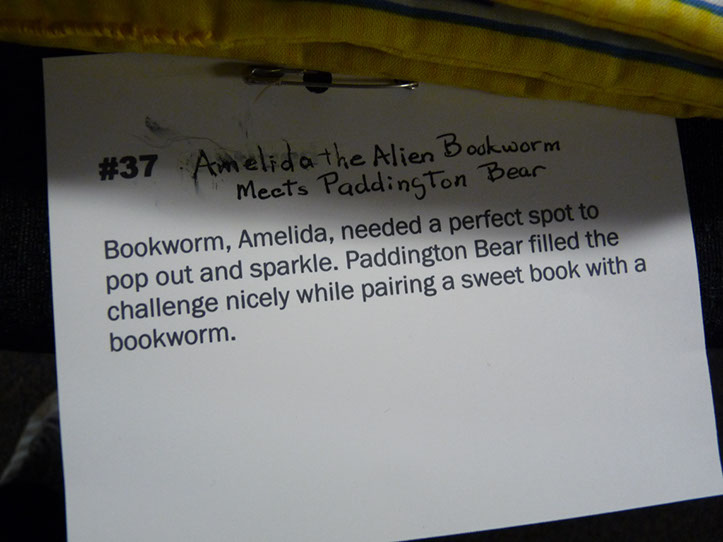 #37 Amelida the Alien Bookworm
Meets Paddington Bear
Bookworm, Amelida, needed a perfect spot to
pop out and sparkle. Paddington Bear filled the
challenge nicely while pairing a sweet book with a
bookworm.